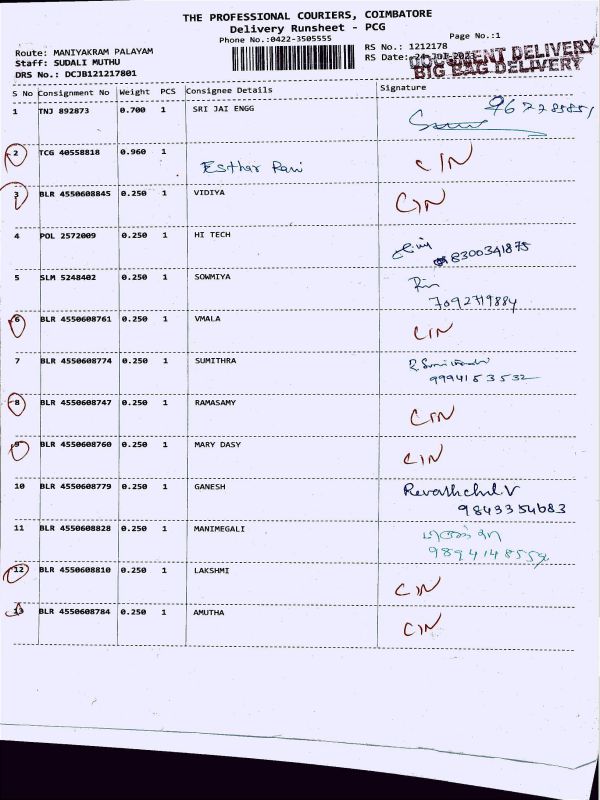 THE PROFESSIONAL COURIERS, COIMBATORE
Delivery Runsheet - PCG
Phone No.:0422-3505555
Page No.:1
Route: MANIYAKRAM PALAYAM
RS No.: 1212178
Staff: SUDALI MUTHU
RS Date:
DOCUMENT DELIVERY
BIG BAG DELIVERY
DRS No.: DCJB121217801
S No Consignment No Weight PCS Consignee Details Signature
1 TNJ 892873 0.700 1 SRI JAI ENGG
2 TCG 40558818 0.960 1 Esthar Rani CIN
3 BLR 4550608845 0.250 1 VIDIYA CIN
4 POL 2572009 0.250 1 HI TECH
8300341875
5 SLM 5248402 0.250 1 SOWMIYA
7092719884
6 BLR 4550608761 0.250 1 VMALA CIN
7 BLR 4550608774 0.250 1 SUMITHRA
9994153532
8 BLR 4550608747 0.250 1 RAMASAMY CIN
9 BLR 4550608760 0.250 1 MARY DASY CIN
10 BLR 4550608779 0.250 1 GANESH
9843354683
11 BLR 4550608828 0.250 1 MANIMEGALI
12 BLR 4550608810 0.250 1 LAKSHMI CIN
13 BLR 4550608784 0.250 1 AMUTHA CIN